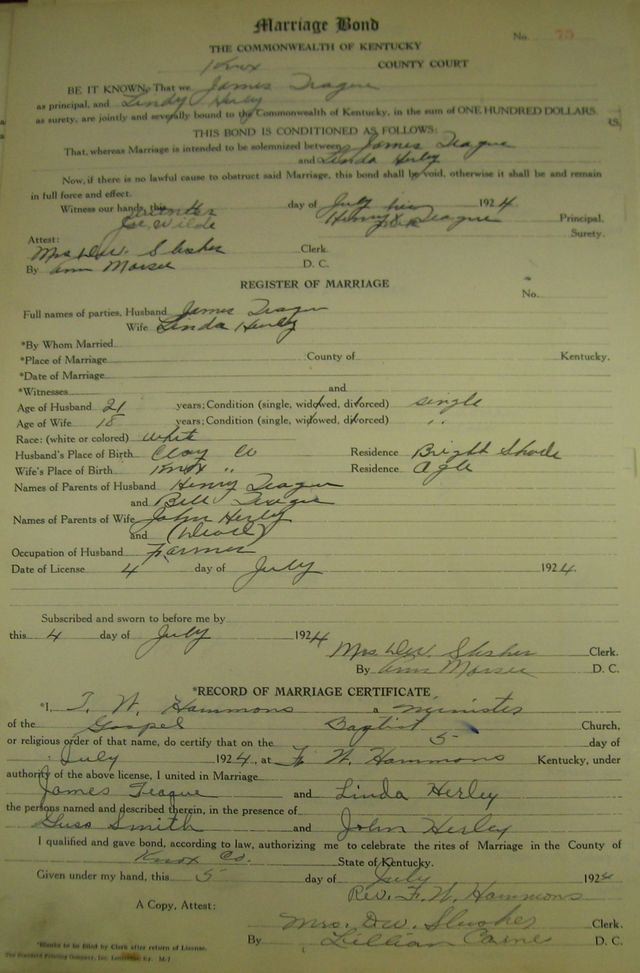 Marriage Bond
No. 75
THE COMMONWEALTH OF KENTUCKY
Knox COUNTY COURT
BE IT KNOWN, That we James Teague
as principal, and Lindy Herly
as surety, are jointly and severally bound to the Commonwealth of Kentucky, in the sum of ONE HUNDRED DOLLARS.
THIS BOND IS CONDITIONED AS FOLLOWS:
That, whereas Marriage is intended to be solemnized between James Teague
and Linda Herly
Now, if there is no lawful cause to obstruct said Marriage, this bond shall be void, otherwise it shall be and remain
in full force and effect.
Witness our hands, this day of July 1924
Joe Wilde Henry X Teague Principal.
Surety.
Attest:
Mrs D.W. Slusher Clerk.
By Ann D. C.
REGISTER OF MARRIAGE
No.
Full names of parties, Husband James Teague
Wife Linda Herly
*By Whom Married
*Place of Marriage County of Kentucky.
*Date of Marriage
*Witnesses and
Age of Husband 21 years; Condition (single, widowed, divorced) single
Age of Wife 18 years; Condition (single, widowed, divorced) "
Race: (white or colored) white
Husband's Place of Birth Clay Co Residence Bright Shade
Wife's Place of Birth Knox " Residence
Names of Parents of Husband Henry Teague
and Bell Teague
Names of Parents of Wife John Herly
and
Occupation of Husband Farmer
Date of License 4 day of July 1924.
Subscribed and sworn to before me by
this 4 day of July 1924
Mrs D.W. Slusher Clerk.
By Ann D. C.
*RECORD OF MARRIAGE CERTIFICATE
*I, F. W. Hammons a Minister
of the Gospel Baptist Church,
or religious order of that name, do certify that on the 5 day of
July 1924, at F. W. Hammons Kentucky, under
authority of the above license, I united in Marriage
James Teague and Linda Herley
the persons named and described therein, in the presence of
Guss Smith and John Herley
I qualified and gave bond, according to law, authorizing me to celebrate the rites of Marriage in the County of
Knox Co. State of Kentucky.
Given under my hand, this 5 day of July 1924
Rev. F. W. Hammons
A Copy, Attest:
Mrs. D.W. Slusher Clerk.
By Lillian D. C.
*Blanks to be filled by Clerk after return of License.
The Standard Printing Company, Inc. Louisville, Ky. M-7